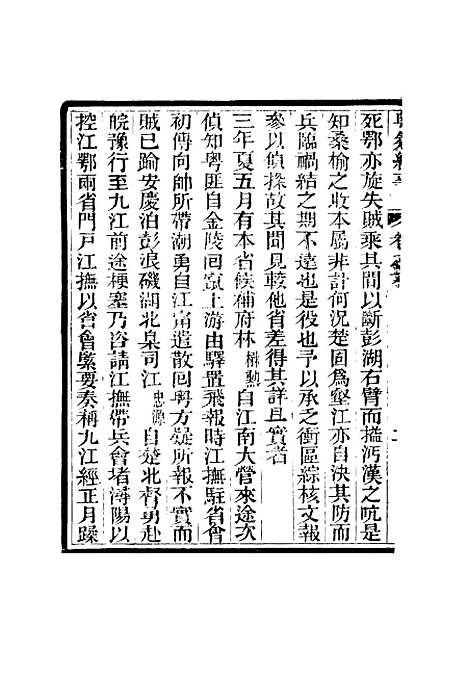 死鄂亦旋失賊乘其間以斷彭湖右臂而搤沔漢之吭是
知桑榆之收本屬非計何況楚固為壑江亦自決其防而
兵臨禍結之期不遠也是役也予以承之衝區綜核文報
參以偵探故其聞見較他省差得其詳且實者
三年夏五月有本省候補府林 自江南大營來途次
偵知粵匪自金陵回竄上游由驛置飛報時江撫駐省會
初傳向帥所帶潮勇自江甯遣散回粵方疑所報不實而
賊已踰安慶泊彭浪磯湖北臬司江忠源自楚北督勇赴
皖豫行至九江前途梗塞乃咨請江撫帶兵會堵潯陽以
控江鄂兩省門戶江撫以省會緊要奏稱九江經正月蹂